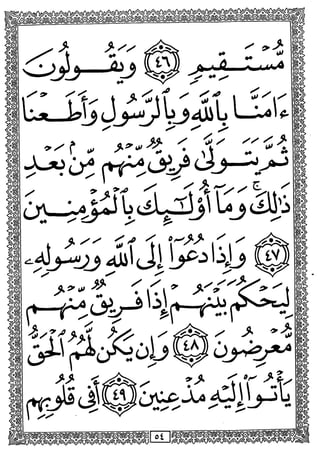 مُّسْتَقِيمٍ ﴿٤٦﴾ وَيَقُولُونَ
ءَامَنَّا بِٱللَّهِ وَبِٱلرَّسُولِ وَأَطَعْنَا
ثُمَّ يَتَوَلَّىٰ فَرِيقٌ مِّنْهُم مِّنۢ بَعْدِ
ذَٰلِكَ ۚ وَمَآ أُو۟لَـٰٓئِكَ بِٱلْمُؤْمِنِينَ
﴿٤٧﴾ وَإِذَا دُعُوٓا۟ إِلَى ٱللَّهِ وَرَسُولِهِۦ
لِيَحْكُمَ بَيْنَهُمْ إِذَا فَرِيقٌ مِّنْهُم
مُّعْرِضُونَ ﴿٤٨﴾ وَإِن يَكُن لَّهُمُ ٱلْحَقُّ
يَأْتُوٓا۟ إِلَيْهِ مُذْعِنِينَ ﴿٤٩﴾ أَفِى قُلُوبِهِم
٥٤